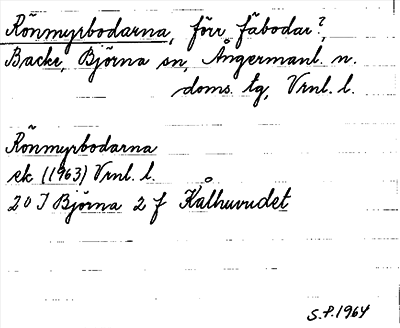 Rönmyrbodarna, förr fäbodar?,
Backe, Björna sn, Ångermanl. n.
doms. tg, Vrnl. l.
Rönmyrbodarna
ek (1963) Vrnl. l.
20 I Björna 2 f Kålhuvudet
S.P.1964